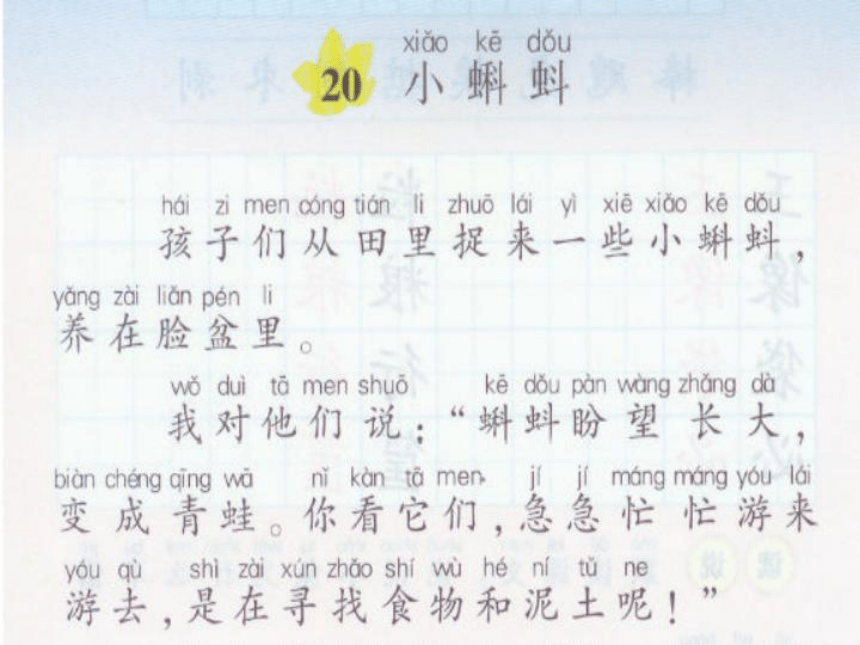 xiǎo kē dǒu
20 小蝌蚪
hái zi men cóng tián li zhuō lái yì xiē xiǎo kē dǒu
孩子们从田里捉来一些小蝌蚪,
yǎng zài liǎn pén li
养在脸盆里。
wǒ duì tā men shuō kē dǒu pàn wàng zhǎng dà
我对他们说:“蝌蚪盼望长大,
biàn chéng qīng wā nǐ kàn tā men jí jí máng máng yóu lái
变成青蛙。你看它们,急急忙忙游来
yóu qù shì zài xún zhǎo shí wù hé ní tǔ ne
游去,是在寻找食物和泥土呢!”